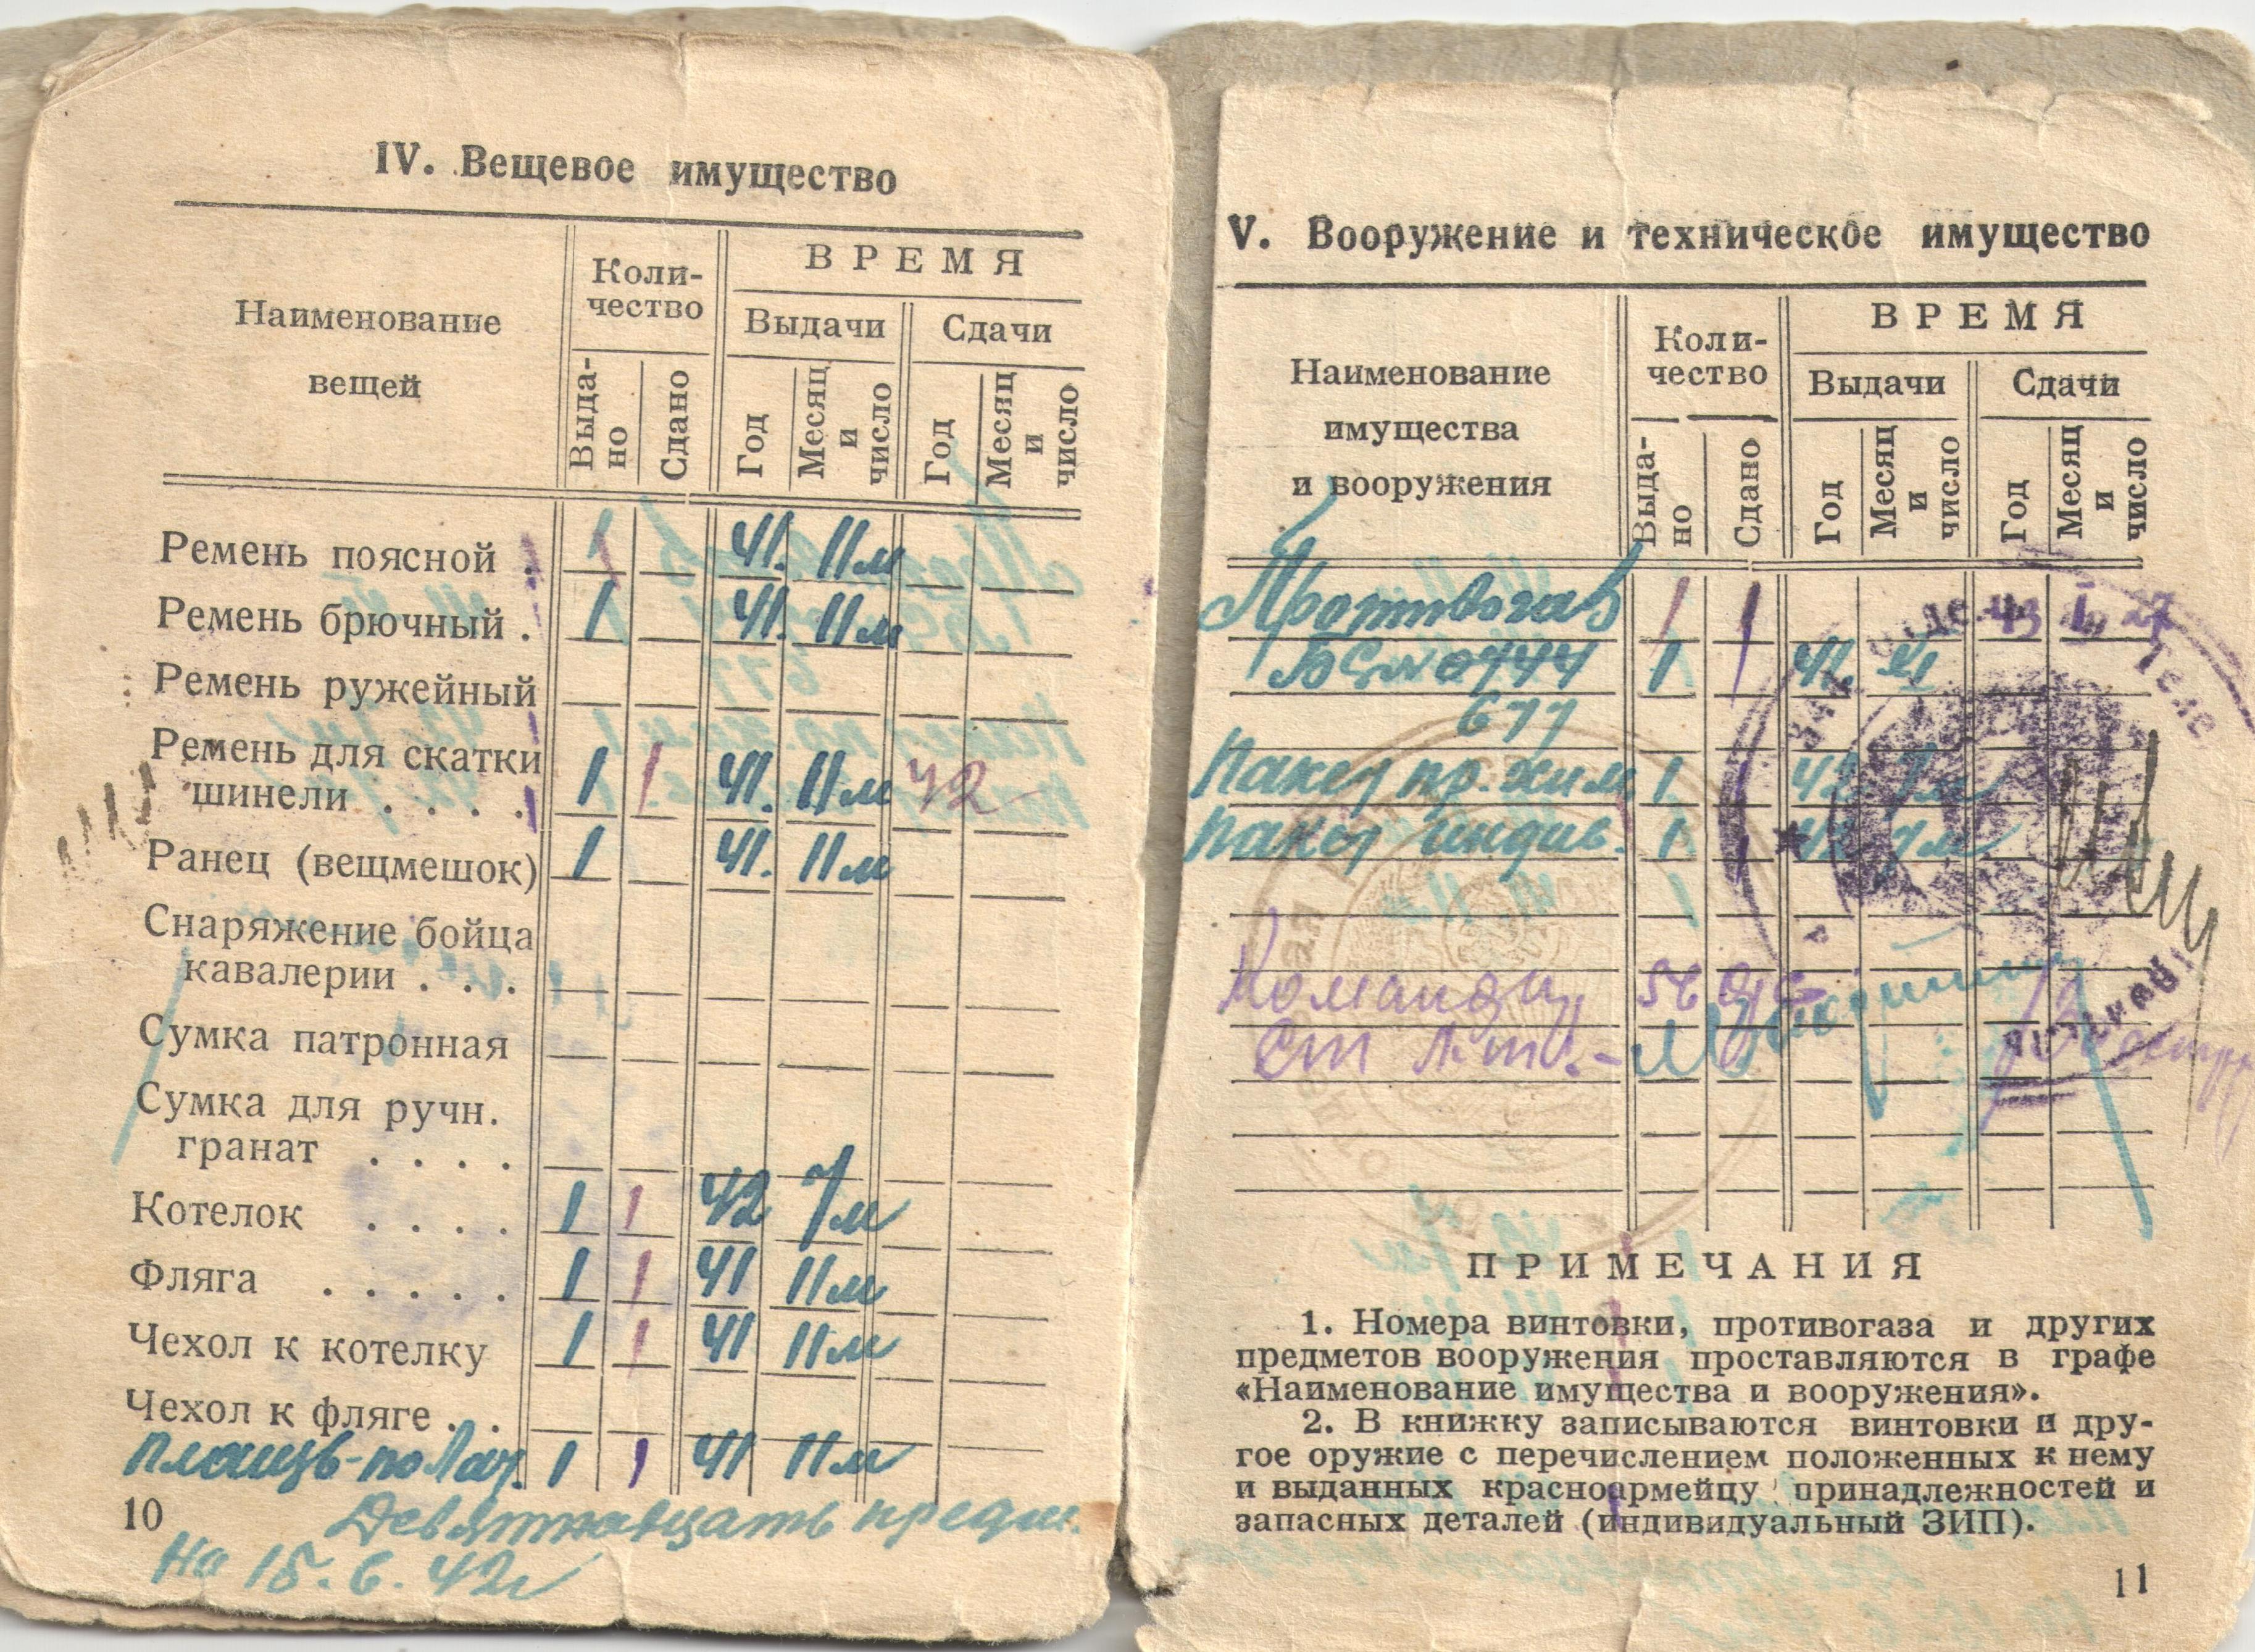 IV. Вещевое имущество
Наименование вещей
Коли-
чество
ВРЕМЯ
Выдачи
Сдачи
Выда-
но
Сдано
Год
Месяц и число
Год
Месяц и число
Ремень поясной . 1 41. 11м
Ремень брючный . 1 41. 11м
Ремень ружейный
Ремень для скатки
шинели . . . . 1 1 41. 11м 42
Ранец (вещмешок) 1 41. 11м
Снаряжение бойца
кавалерии . . .
Сумка патронная
Сумка для ручн.
гранат . . . .
Котелок . . . . 1 1 42 7м
Фляга . . . . . 1 1 41 11м
Чехол к котелку 1 1 41 11м
Чехол к фляге . .
плащь-полат. 1 1 41 11м
10
Девятнадцать предм.
На 15.6.42г
V. Вооружение и техническое имущество
Наименование
имущества
и вооружения
Коли-
чество
ВРЕМЯ
Выдачи
Сдачи
Выда-
но
Сдано
Год
Месяц и число
Год
Месяц и число
Противогаз 1 1 43 1 27
БС № 0444 1 41. XI
677
Пакет пр. хим 1 1 42 7м
Пакет индив. 1 1 42 7м
Командир
Ст л-т
ПРИМЕЧАНИЯ
1. Номера винтовки, противогаза и других
предметов вооружения проставляются в графе
«Наименование имущества и вооружения».
2. В книжку записываются винтовки и дру-
гое оружие с перечислением положенных к нему
и выданных красноармейцу принадлежностей и
запасных деталей (индивидуальный ЗИП).
11